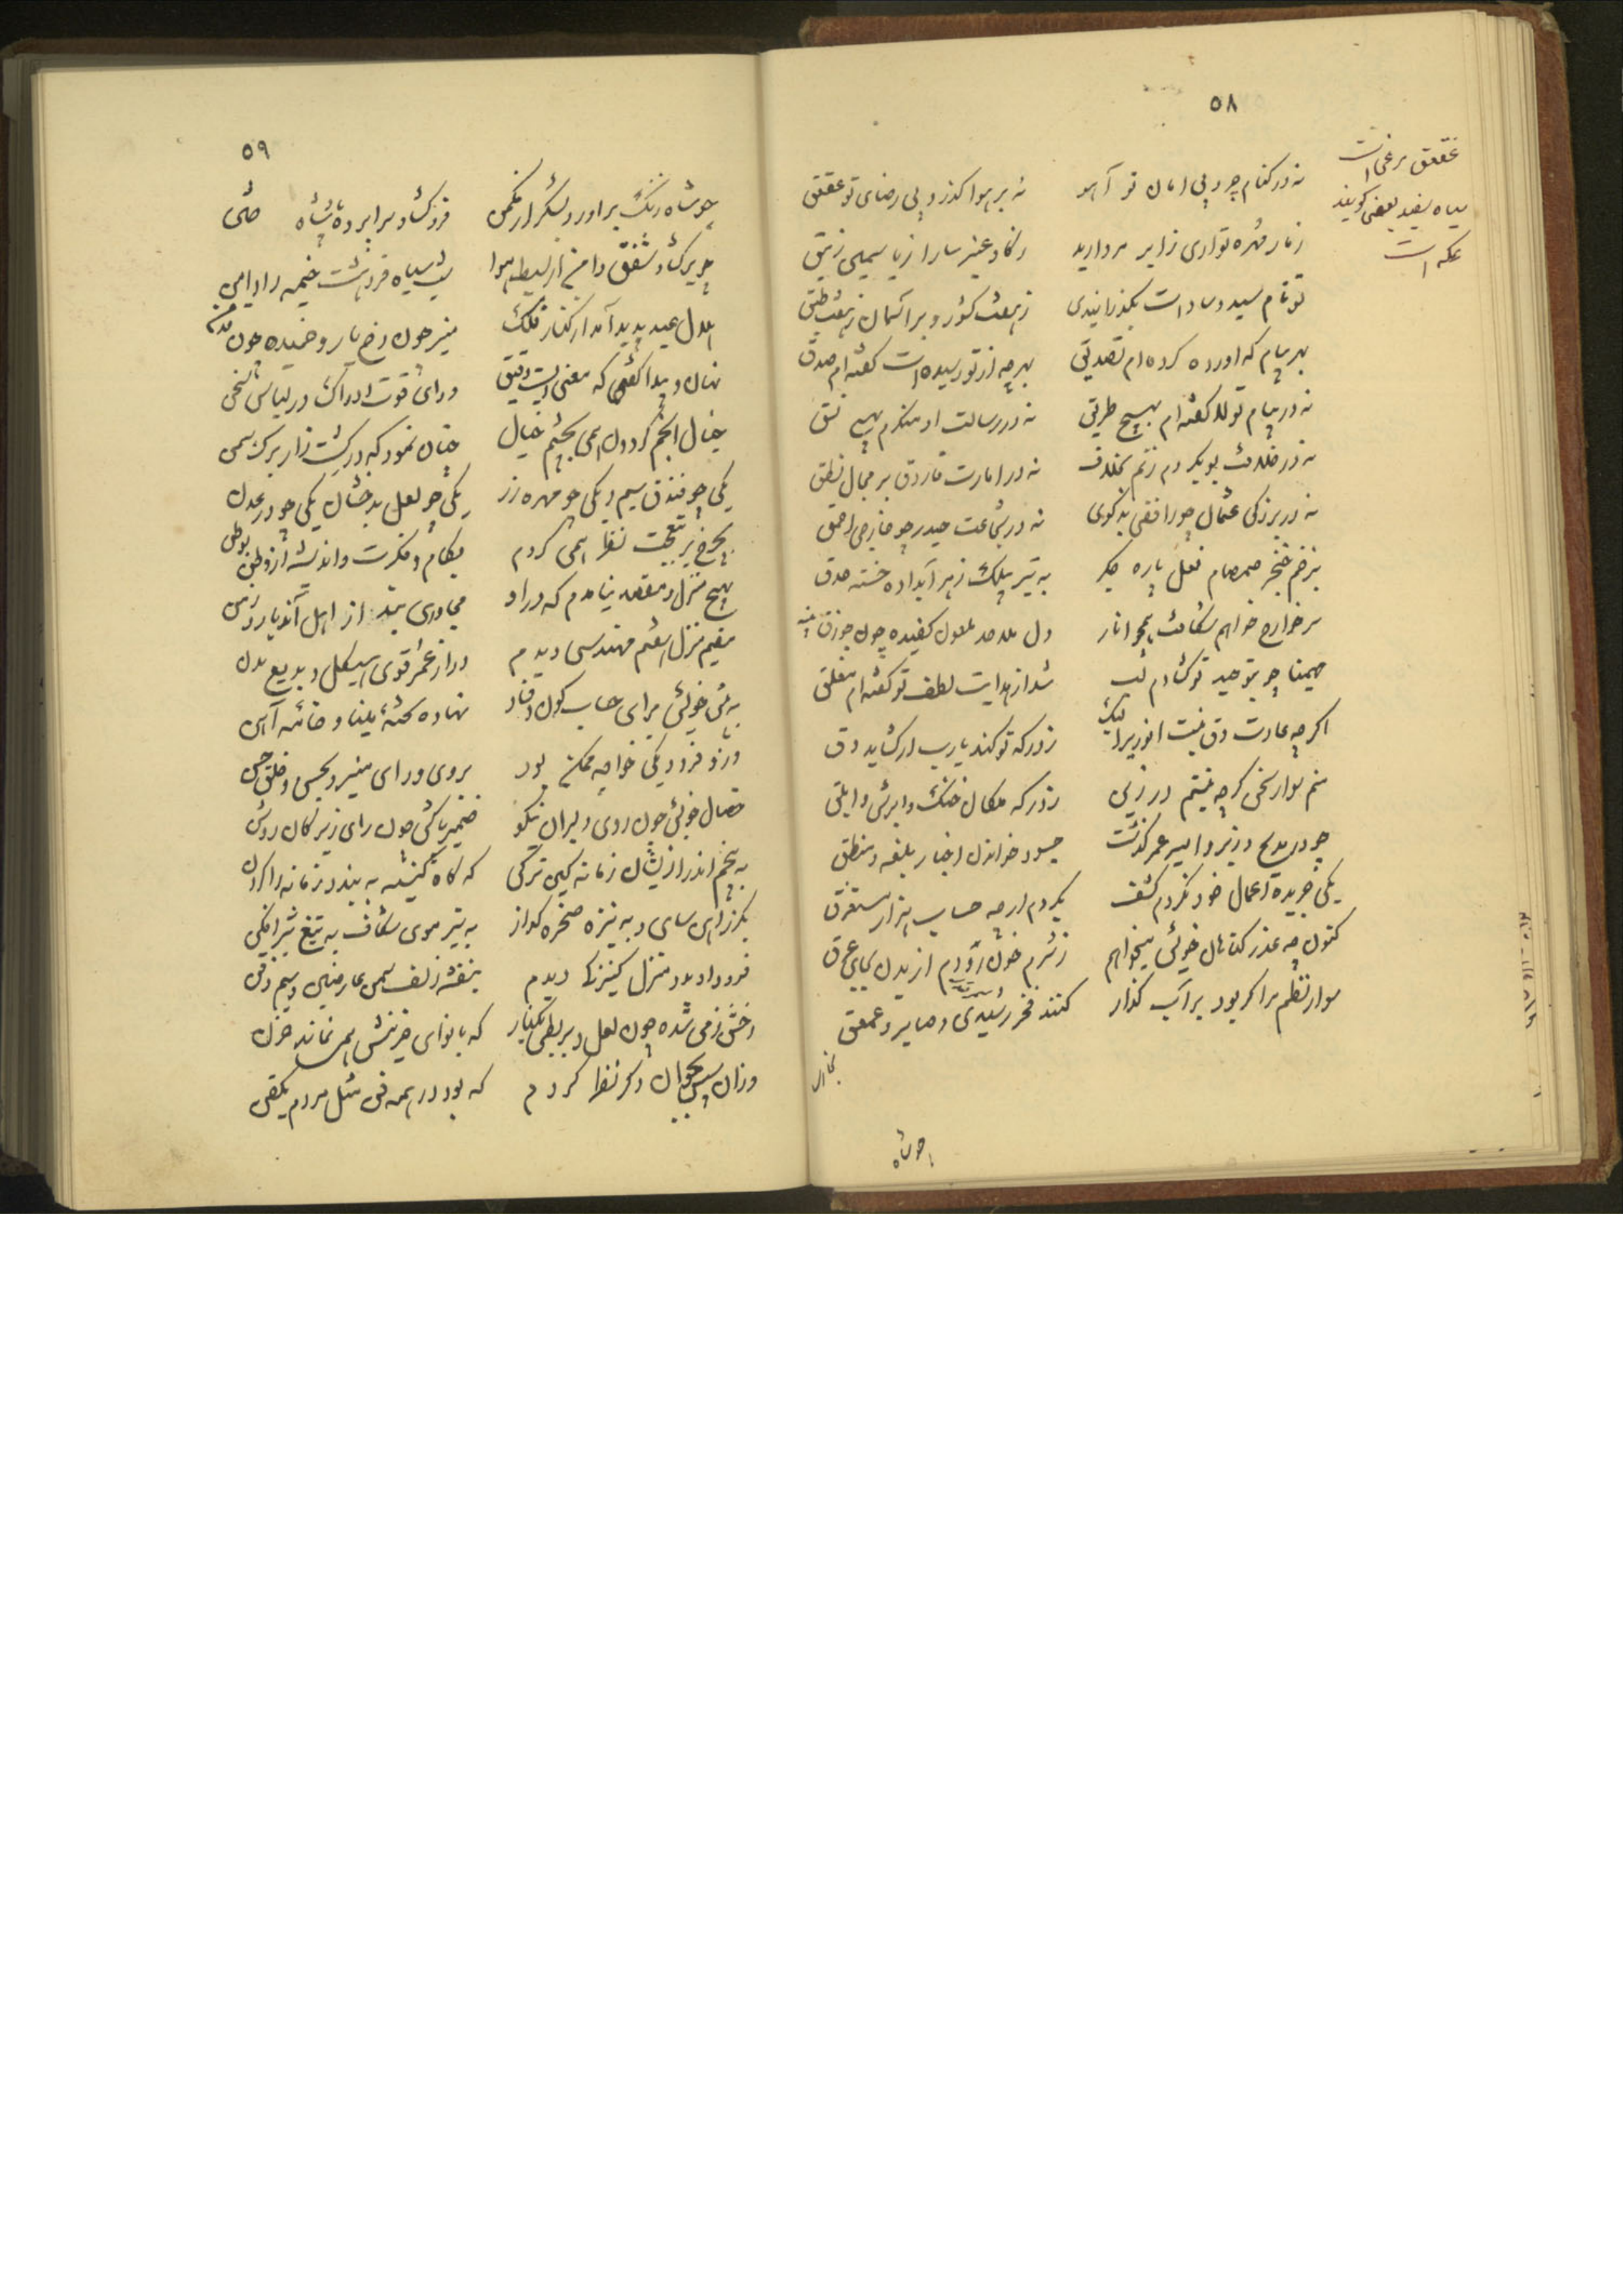 ٥٨
عقعق مرغی است
سیاه سفید بعضی گویند
عکه است
نه در کنام چرد بی امان تو آهو
نه بر هوا گذرد بی رضای تو عقعق
ز مار مهره تو آری ز ابر مروارید
ز گاو عنبر سارا ز یاسمین زنبق
تو نام سید سادات بگذرانیدی
ز هفت کشور و بر آسمان ز هفت طبق
بهر پیام که آورده کرده‌ام تصدیق
بهرچه از تو رسیده است گفته‌ام صدق
نه در پیام تو لا گفته‌ام بهیچ طریق
نه در رسالت او منکرم بهیچ نسق
نه در خلافت بوبکر دم زنم بخلاف
نه در امارت فاروق بر مجال نطق
نه در بزرگی عثمان چو رافضی بدگوی
نه در شجاعت حیدر چو خارجی احمق
بزخم خنجر صمصام فعل پاره جگر
به تیر بیلک زهر آبداده خسته حدق
سر خوارج خواهم شکافت همچو انار
دل ملاحده ملعون کفیده چون جوزق
مهیمنا چو بتوحید تو گشادم لب
شد از هدایت لطف تو گفته‌ام مغلق
اگرچه عادت دق نیست انوریرا لیک
ز درگه تو کند یارب ار گشاید دق
منم سوار سخن گرچه نیستم در زین
ز درگه ملکان خنگ و ابرش و ابلق
چو در مدیح وزیر و امیر عمر گذشت
چه سود خواندن اخبار بلغه و منطق
یکی جریده اعمال خود نکردم کشف
بکردم ارچه حساب هزار مستغرق
کنون چه عذر گناهان خویش میخواهم
ز شرم خون رودم از بدن بجای عرق
سوار نظم مرا گر بود بر آب گذار
کنند فخر رشیدی و صابر و عمعق
چو شاه
٥٩
چو شاه زنگ برآورد لشکر از مکمن
فروگشاد سراپرده پادشاه ختن
چو برگشاد شفق دامن از بسیط هوا
شب سیاه فروهشت خیمه را دامن
هلال عید پدید آمد از کنار فلک
منیر چون رخ یار و خمیده چون قد من
نهان و پیدا گفتی که معنیی است دقیق
ورای قوت ادراک در لباس سخن
خیال انجم گردون همی بچشم خیال
چنان نمود که در کشت‌زار برگ سمن
یکی چو فندق سیم و یکی چو مهره زر
یکی چو لعل بدخشان یکی چو در عدن
بچرخ بر بتعجب نظر همی کردم
بگام فکرت و اندیشه از وطن بوطن
بهیچ منزل و مقصد نیامدم که در او
مجاوری بند از اهل آن دیار و زمن
مقیم منزل هفتم مهندسی دیدم
دراز عمر قوی هیکل و بدیع بدن
به پیش خویش برای حساب کون و فساد
نهاده تخته مینا و خامه آهن
وز او فرود یکی خواجه ممکن بود
بروی و رای منیر و بحسن و خلق حسن
خصال خویش چون روی دلبران نیکو
ضمیر پاکش چون رای زیرکان روشن
به پنجم اندر از ایشان زمانه کین ترکی
که گاه کینه به بندد زمانه را گردن
بگرز آهن سای و به نیزه صخره گداز
به تیر موی شکاف به تیغ شیرافکن
فرود او بدو منزل کنیزکی دیدم
بنفشه زلف سمن عارضین و سیم ذقن
رخش ز می شده چون لعل و بربطی بکنار
که با نوای خزینش همی نماند حزن
وزان سپس بجوان دگر نظر کردم
که بود در همه فن مثل مردم یک فن